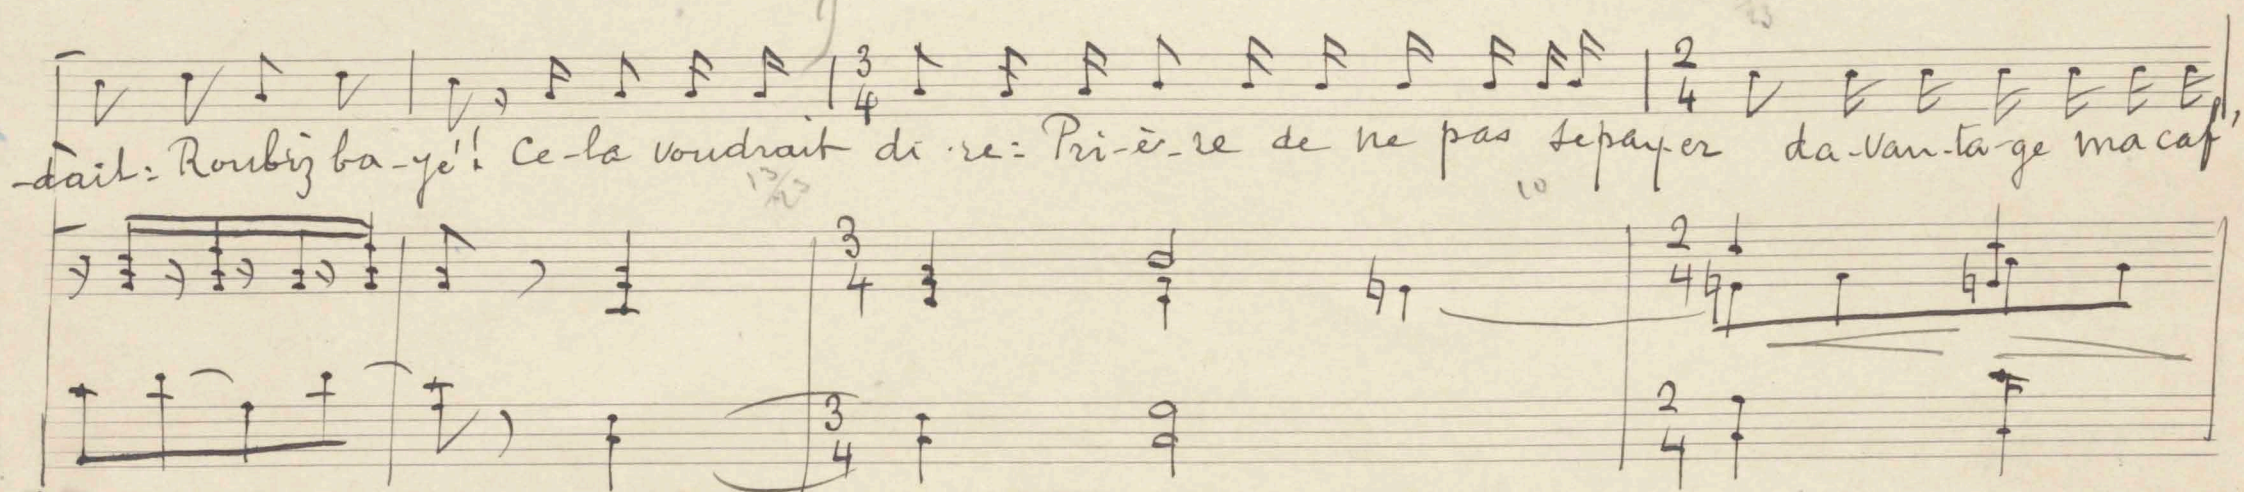 -dait: Roubiz ba-yé! Ce-la voudrait di-re: Pri-è-re de ne pas se pay-er da-van-ta-ge ma caf',